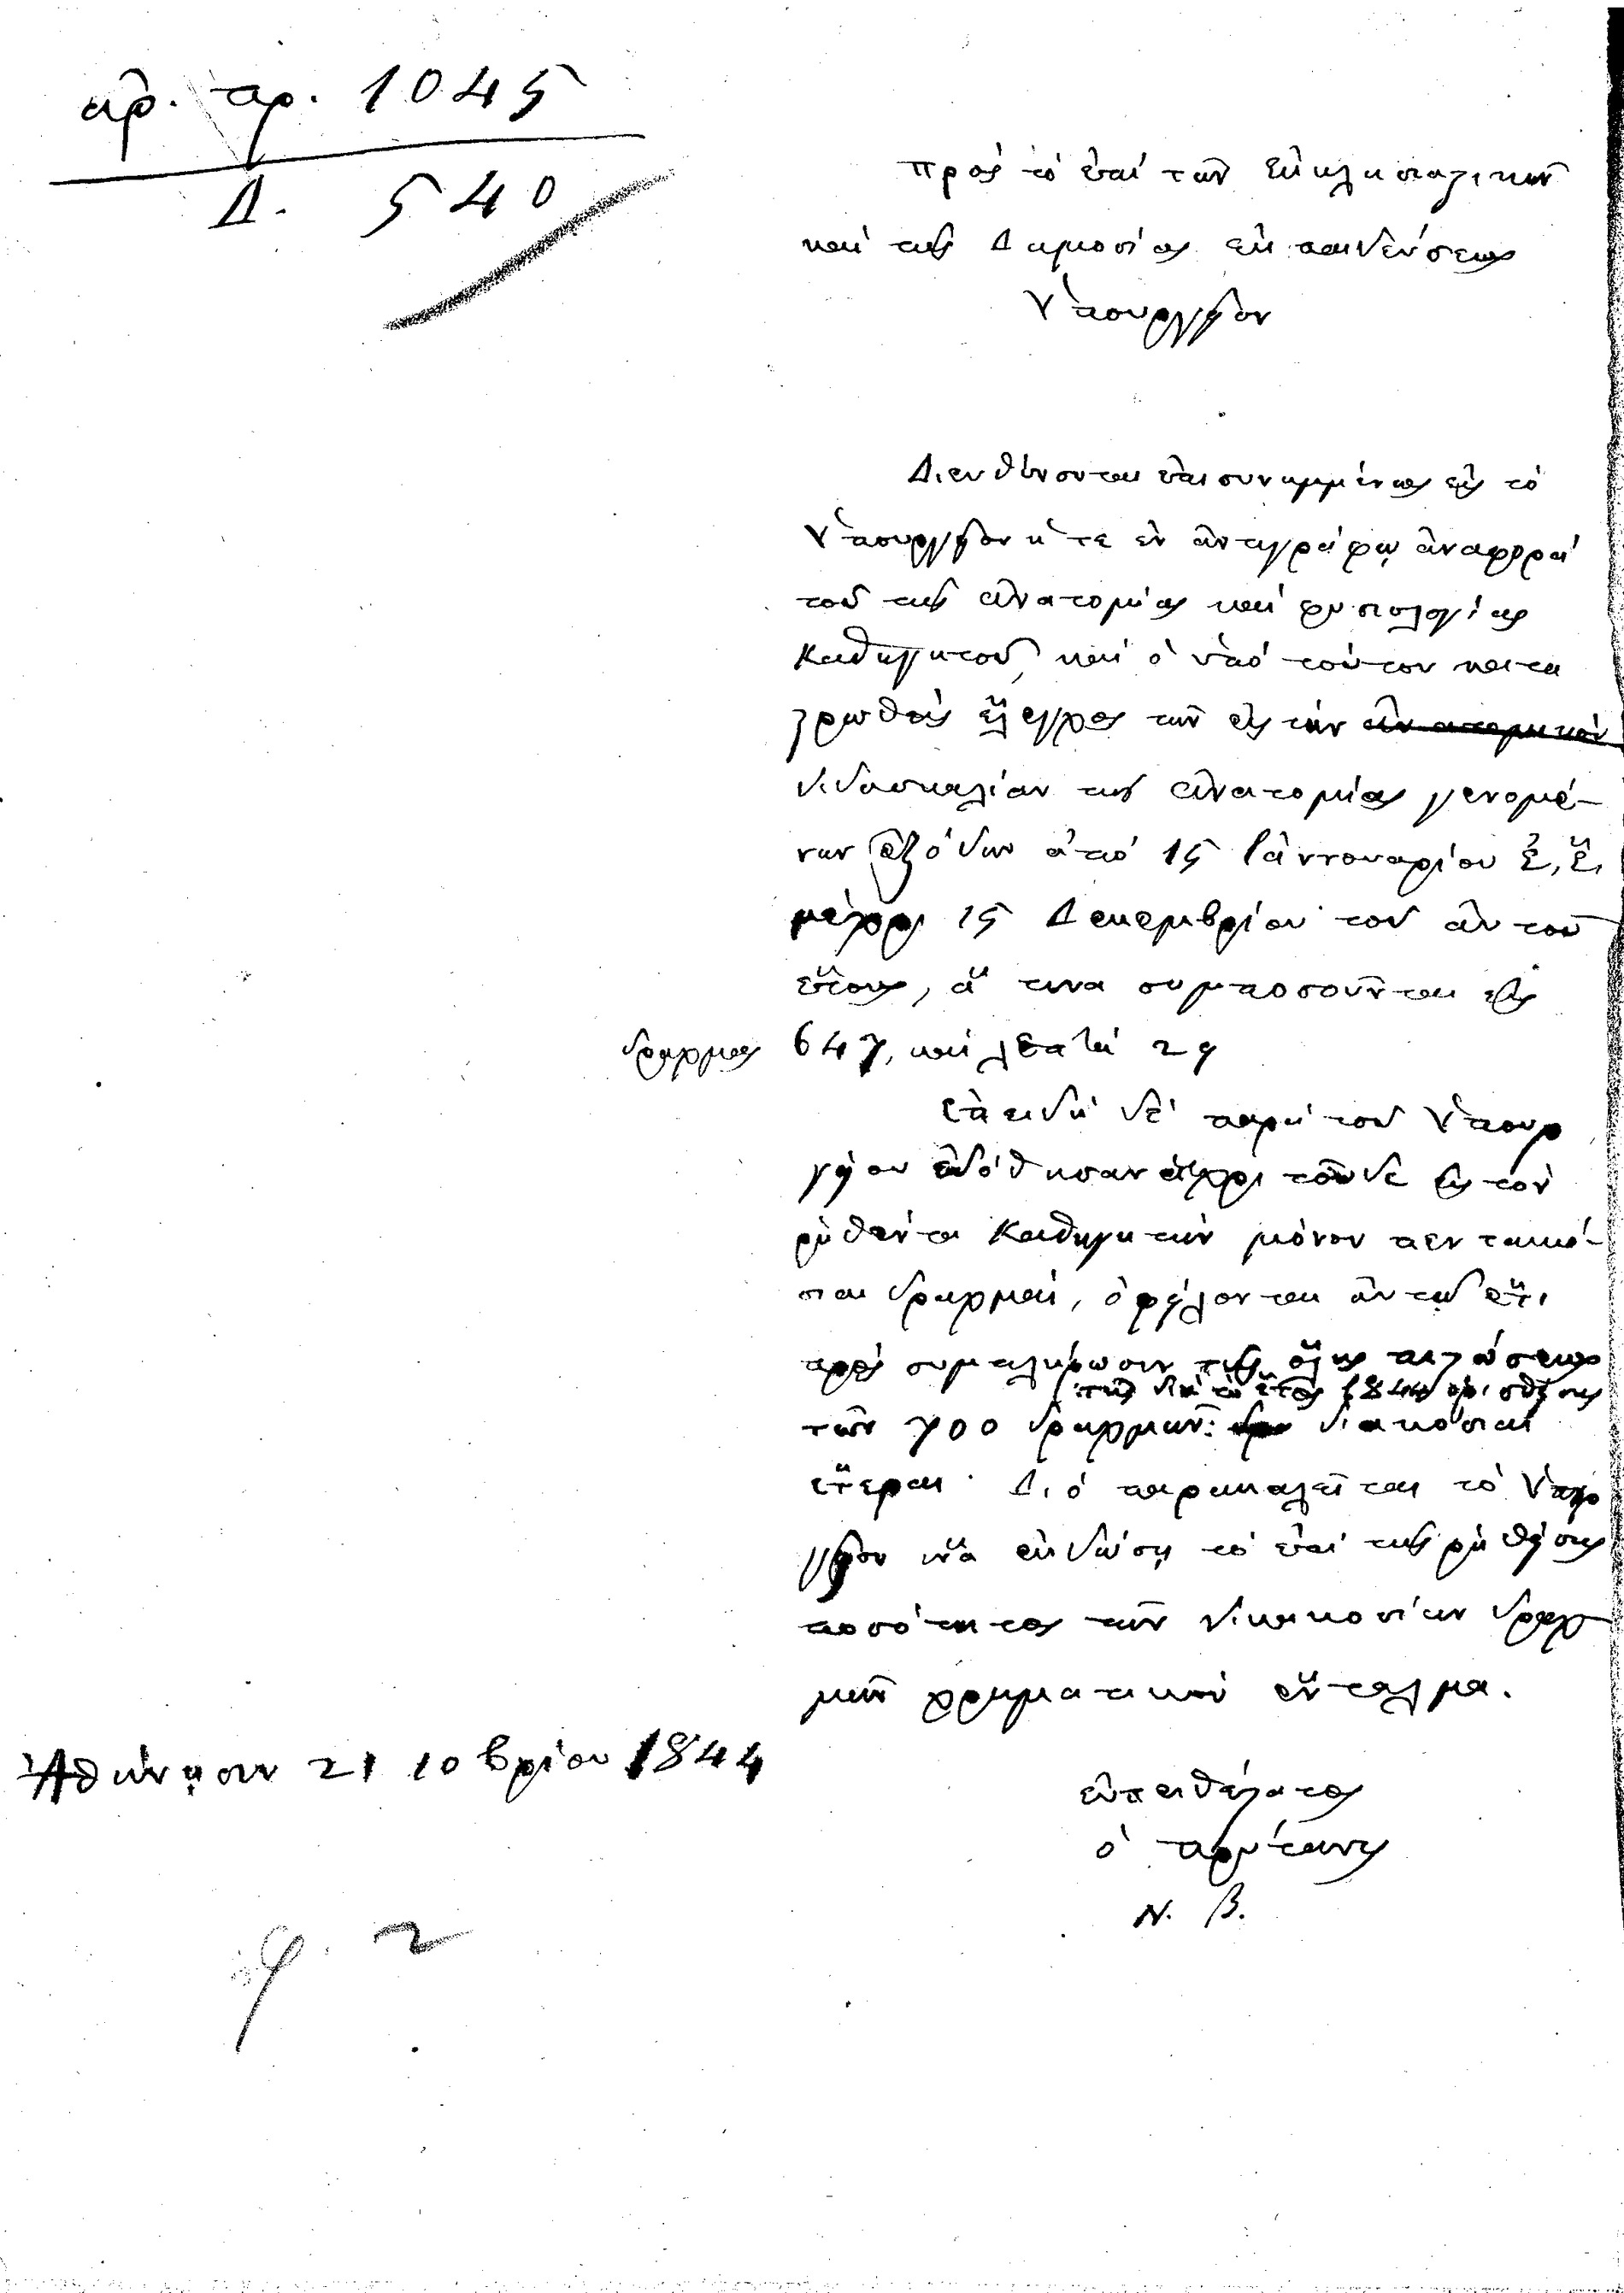 ἀρ. πρ. 1045
Δ. 540
Πρὸς τὸ ἐπὶ τῶν Ἐκκλησιαστικῶν
καὶ τῆς Δημοσίας ἐκπαιδεύσεως
Ὑπουργεῖον
Διευθύνονται ἐπισυνημμένως εἰς τὸ
Ὑπουργεῖον ἥ τε ἐν ἀντιγράφῳ ἀναφορὰ
τοῦ τῆς ἀνατομίας καὶ φυσιολογίας
Καθηγητοῦ, καὶ ὁ ὑπὸ τούτου κατα
στρωθεὶς ἔλεγχος τῶν εἰς τὴν ἀνατομικὴν
διδασκαλίαν τῆς ἀνατομίας γενομέ-
νων ἐξόδων ἀπὸ 15 Ἰαννουαρίου ἐ. ἔ.
μέχρι 15 Δεκεμβρίου τοῦ αὐτοῦ
ἔτους, ἅ τινα συμποσοῦνται εἰς
δραχμὰς 647, καὶ λεπτὰ 29
Ἐπειδὴ δὲ παρὰ τοῦ Ὑπουρ
γείου ἐδόθησαν ἄχρι τοῦδε εἰς τὸν
ῥηθέντα Καθηγητὴν μόνον πεντακό-
σιαι δραχμαὶ, ὀφείλονται αὐτῷ ἔτι
πρὸς συμπλήρωσιν τῆς ὅλης πιστώσεως
τῆς διὰ τὸ ἔτος 1844 ὁρισθείσης
τῶν 700 δραχμῶν: διακόσιαι
ἕτεραι. Διὸ παρακαλεῖται τὸ Ὑπουρ
γεῖον ἵνα ἐκδώσῃ τὸ ἐπὶ τῆς ῥηθείσης
ποσότητος τῶν διακοσίων δραχ
μῶν χρηματικὸν ἔνταλμα.
Ἀθήνησιν 21 10βρίου 1844
εὐπειθέστατος
ὁ πρύτανις
Ν. Β.
φ. 2